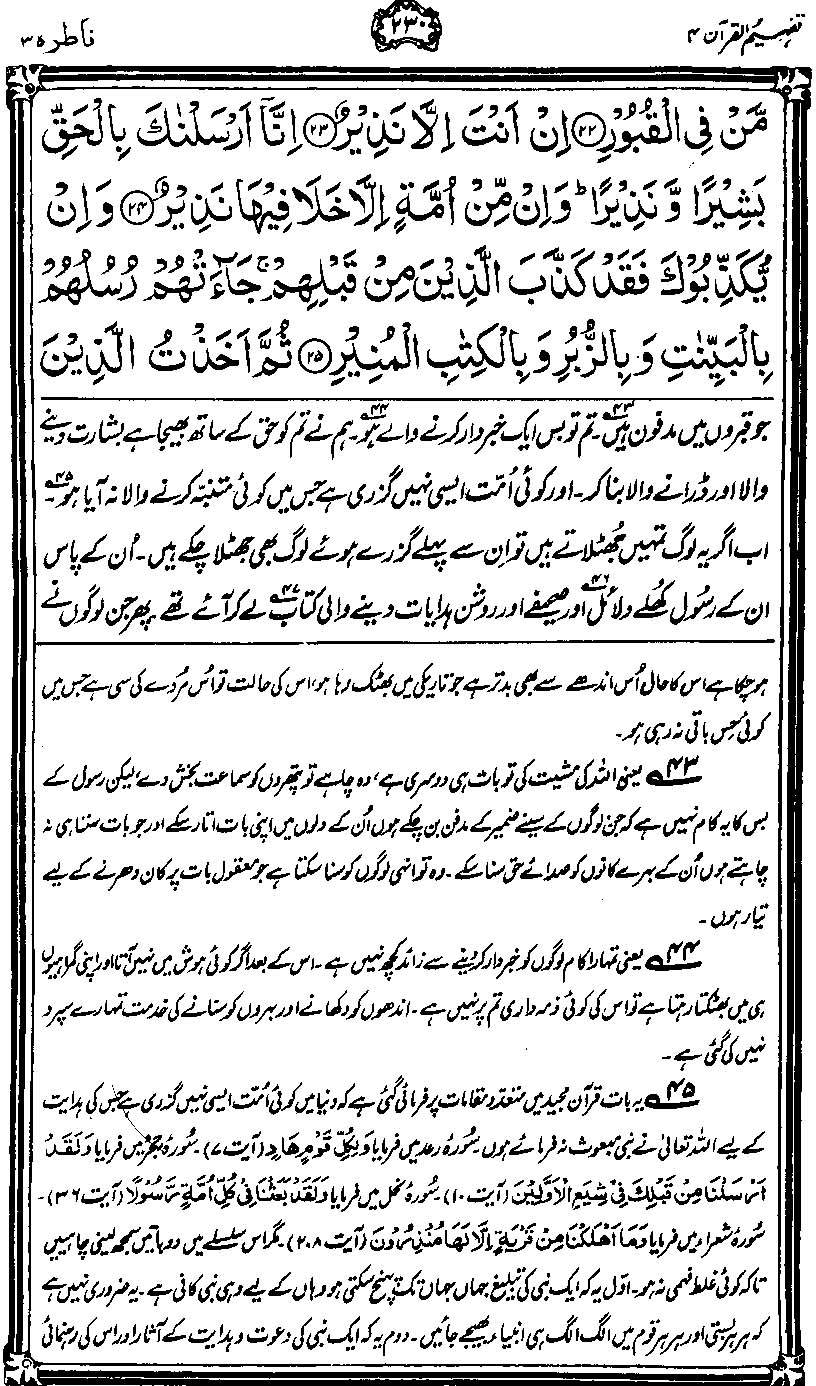 تفہیم القرآن ۴
۲۳۰
فاطر ۳۵
مَّنْ فِي الْقُبُوْرِ ﴿۲۲﴾ اِنْ اَنْتَ اِلَّا نَذِيْرٌ ﴿۲۳﴾ اِنَّآ اَرْسَلْنٰكَ بِالْحَقِّ
بَشِيْرًا وَّ نَذِيْرًا ؕ وَ اِنْ مِّنْ اُمَّةٍ اِلَّا خَلَا فِيْهَا نَذِيْرٌ ﴿۲۴﴾ وَ اِنْ
يُّكَذِّبُوْكَ فَقَدْ كَذَّبَ الَّذِيْنَ مِنْ قَبْلِهِمْ ۚ جَآءَتْهُمْ رُسُلُهُمْ
بِالْبَيِّنٰتِ وَ بِالزُّبُرِ وَ بِالْكِتٰبِ الْمُنِيْرِ ﴿۲۵﴾ ثُمَّ اَخَذْتُ الَّذِيْنَ
جو قبروں میں مدفون ہیں۴۳۔ تم تو بس ایک خبردار کرنے والے ہو۴۴۔ ہم نے تم کو حق کے ساتھ بھیجا ہے بشارت دینے
والا اور ڈرانے والا بنا کر۔ اور کوئی اُمّت ایسی نہیں گزری ہے جس میں کوئی متنبّہ کرنے والا نہ آیا ہو۴۵۔
اب اگر یہ لوگ تمہیں جھُٹلاتے ہیں تو اِن سے پہلے گزرے ہوئے لوگ بھی جھٹلا چکے ہیں۔ اُن کے پاس
ان کے رسُول کھُلے دلائل۴۶ اور صحیفے اور روشن ہدایات دینے والی کتاب۴۷ لے کر آئے تھے، پھر جن لوگوں نے
ہو چکا ہے اس کا حال اُس اندھے سے بھی بدتر ہے جو تاریکی میں بھٹک رہا ہو، اس کی حالت تو اُس مُردے کی سی ہے جس میں
کوئی حِس باقی نہ رہی ہو۔
۴۳ یعنی اللہ کی مشیت کی تو بات ہی دوسری ہے، وہ چاہے تو پتھروں کو سماعت بخش دے، لیکن رسول کے
بس کا یہ کام نہیں ہے کہ جن لوگوں کے سینے ضمیر کے مدفن بن چکے ہوں اُن کے دلوں میں اپنی بات اتار سکے اور جو بات سننا ہی نہ
چاہتے ہوں اُن کے بہرے کانوں کو صدائے حق سنا سکے۔ وہ تو انہی لوگوں کو سنا سکتا ہے جو معقول بات پر کان دھرنے کے لیے
تیار ہوں۔
۴۴ یعنی تمہارا کام لوگوں کو خبردار کر دینے سے زائد کچھ نہیں ہے۔ اس کے بعد اگر کوئی ہوش میں نہیں آتا اور اپنی گمراہیوں
ہی میں بھٹکتا رہتا ہے تو اس کی کوئی ذمہ داری تم پر نہیں ہے۔ اندھوں کو دکھانے اور بہروں کو سنانے کی خدمت تمہارے سپرد
نہیں کی گئی ہے۔
۴۵ یہ بات قرآن مجید میں متعدد مقامات پر فرمائی گئی ہے کہ دنیا میں کوئی اُمّت ایسی نہیں گزری ہے جس کی ہدایت
کے لیے اللہ تعالیٰ نے نبی مبعوث نہ فرمائے ہوں۔ سُورۂ رعد میں فرمایا وَلِكُلِّ قَوْمٍ هَادٍ (آیت ۷)۔ سُورۂ حجر میں فرمایا وَلَقَدْ
اَرْسَلْنَا مِنْ قَبْلِكَ فِيْ شِيَعِ الْاَوَّلِيْنَ (آیت ۱۰)۔ سُورۂ نحل میں فرمایا وَلَقَدْ بَعَثْنَا فِيْ كُلِّ اُمَّةٍ رَّسُوْلًا (آیت ۳۶)۔
سُورۂ شعراء میں فرمایا وَمَا اَهْلَكْنَا مِنْ قَرْيَةٍ اِلَّا لَهَا مُنْذِرُوْنَ (آیت ۲۰۸)۔ مگر اس سلسلے میں دو باتیں سمجھ لینی چاہییں
تاکہ کوئی غلط فہمی نہ ہو۔ اوّل یہ کہ ایک نبی کی تبلیغ جہاں جہاں تک پہنچ سکتی ہو وہاں کے لیے وہی نبی کافی ہے۔ یہ ضروری نہیں ہے
کہ ہر ہر بستی اور ہر ہر قوم میں الگ الگ ہی انبیاء بھیجے جائیں۔ دوم یہ کہ ایک نبی کی دعوت و ہدایت کے آثار اور اس کی رہنمائی